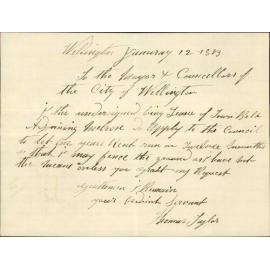 Wellington January 12 1889
To the Mayor & Councillors of
the City of Wellington
I the undersigned being Leasee of Town Belt
Adjoining Melrose to Apply to the Council
to let five years Rent run on Twelve Months
so that I may fence the ground as I have not
the means unless you grant my Request
Gentlemen I Remain
your obedient Servant
Thomas Taylor